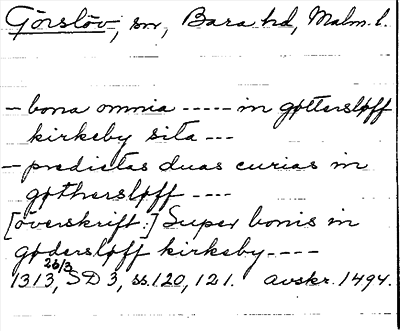 Görslöv, sn, Bara hd, Malm. l.
– bona omnia ----- in gøttersløff
kirkeby sita ---
– predictas duas curias in
gøthersløff ----
[överskrift:] Super bonis in
gødersløff kirkeby ----
1313 26/3, SD 3, ss. 120, 121. avskr. 1494.